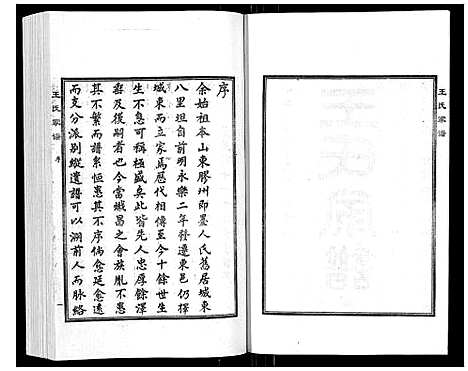 王氏家譜
序
余始祖本山東膠州即墨人氏舊居城東
八里坦自前明永樂二年發遷東邑仍擇
城東而立家焉歷代相傳至今十餘世生
生不息可稱極盛矣此皆先人忠厚餘澤
裔及後嗣者也今當熾昌之會族胤不患
其不繁而譜系恒患其不序倘愈延愈遠
而支分派別縱遺譜可以溯前人而脉絡
王氏家譜
序
一